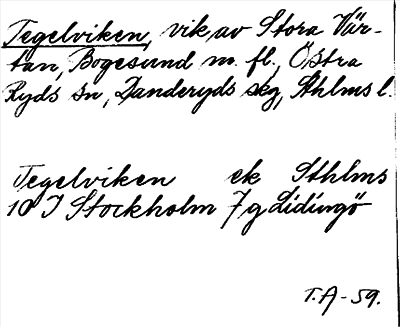 Tegelviken, vik av Stora Vär-
tan, Bogesund m. fl., Östra
Ryds sn, Danderyds skg, Sthlms l.
Tegelviken ek Sthlms
10 I Stockholm 7 g Lidingö
T.A-59.